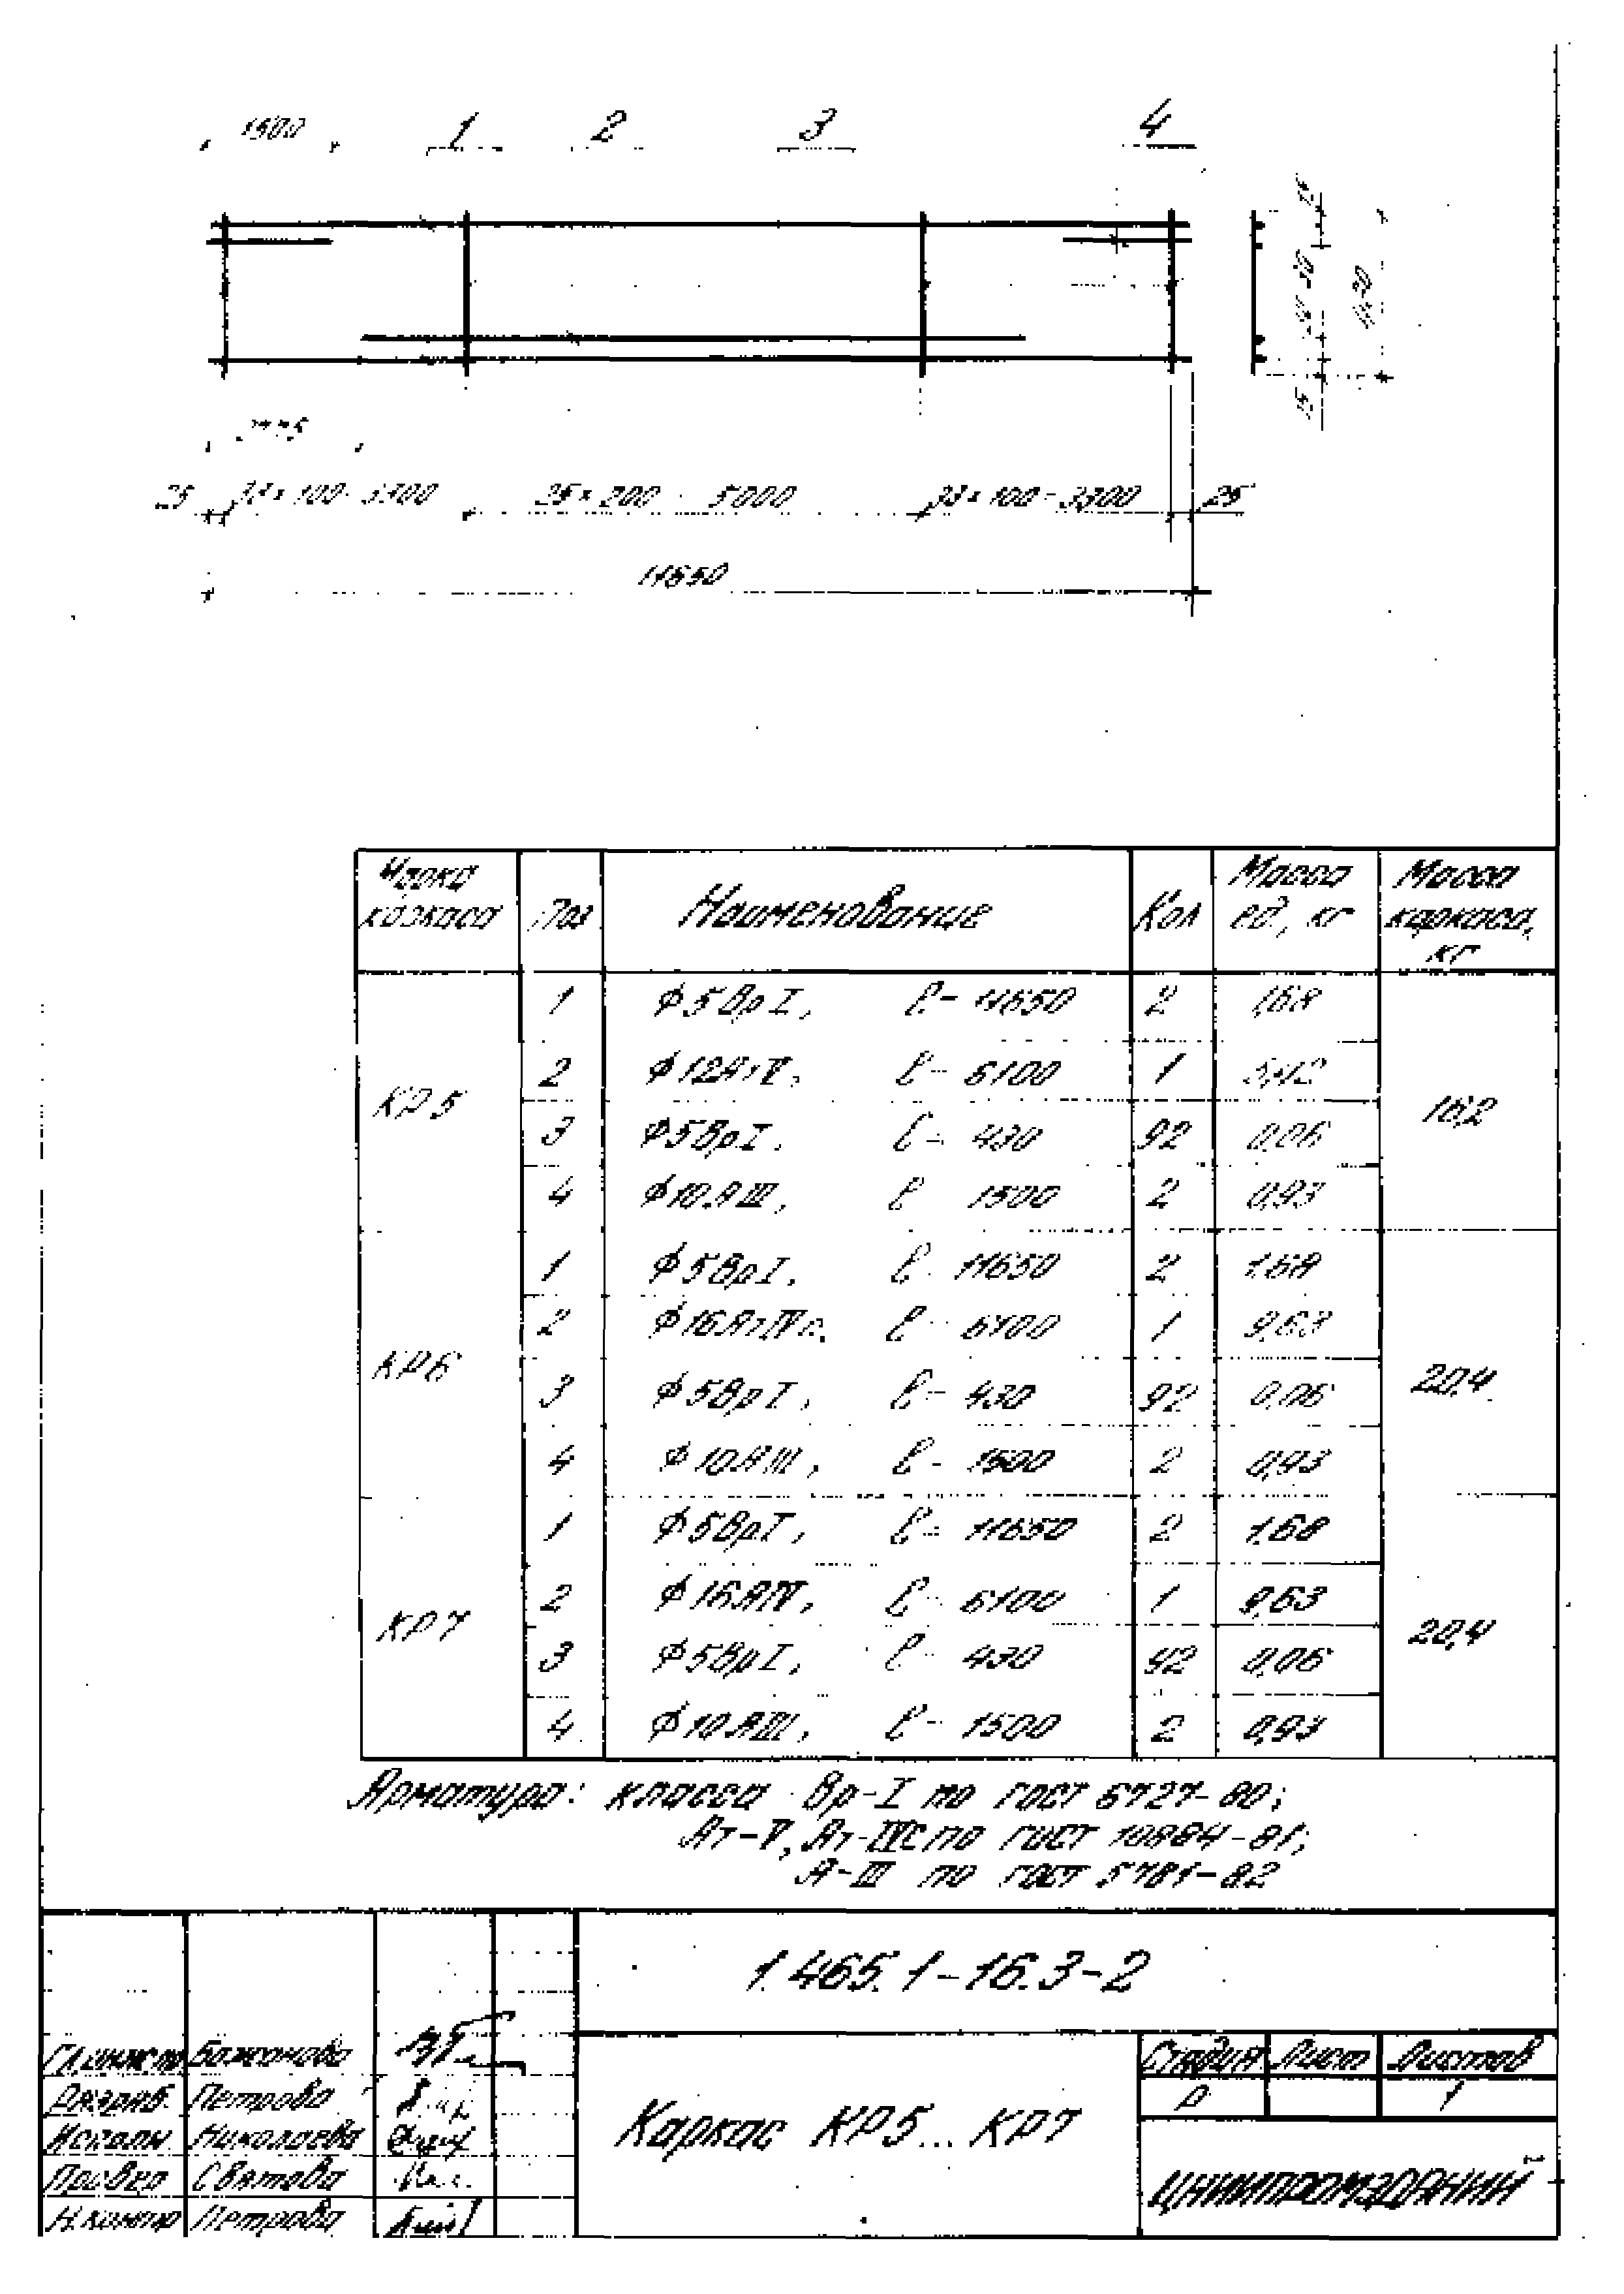 1500 1 2 3 4
25 33×100=3300 25×200 = 5000 33×100=3300 25
11650
Марка каркаса Поз. Наименование Кол Масса ед, кг Масса каркаса, кг
КР5 1 Ф5ВрI, ℓ= 11650 2 1,68 16,2
2 Ф12АтV, ℓ= 6100 1 5,42
3 Ф5ВрI, ℓ= 430 92 0,06
4 Ф10АIII, ℓ 1500 2 0,93
КР6 1 Ф5ВрI, ℓ= 11650 2 1,68 20,4
2 Ф16АтIVс, ℓ= 6100 1 9,63
3 Ф5ВрI, ℓ= 430 92 0,06
4 Ф10АIII, ℓ= 1500 2 0,93
КР7 1 Ф5ВрI, ℓ= 11650 2 1,68 20,4
2 Ф16АIV, ℓ= 6100 1 9,63
3 Ф5ВрI, ℓ= 430 92 0,06
4 Ф10АIII, ℓ= 1500 2 0,93
Арматура: класса Вр-I по ГОСТ 6727-80;
Ат-V, Ат-IVС по ГОСТ 10884-81;
А-III по ГОСТ 5781-82
1.465.1-16.3-2
Гл.инж.пр. Бажанова
Разраб. Петрова
Исполн Николаева
Провер Святова
Н.контр Петрова
Каркас КР5...КР7
Стадия Лист Листов
Р 1
ЦНИИПРОМЗДАНИЙ